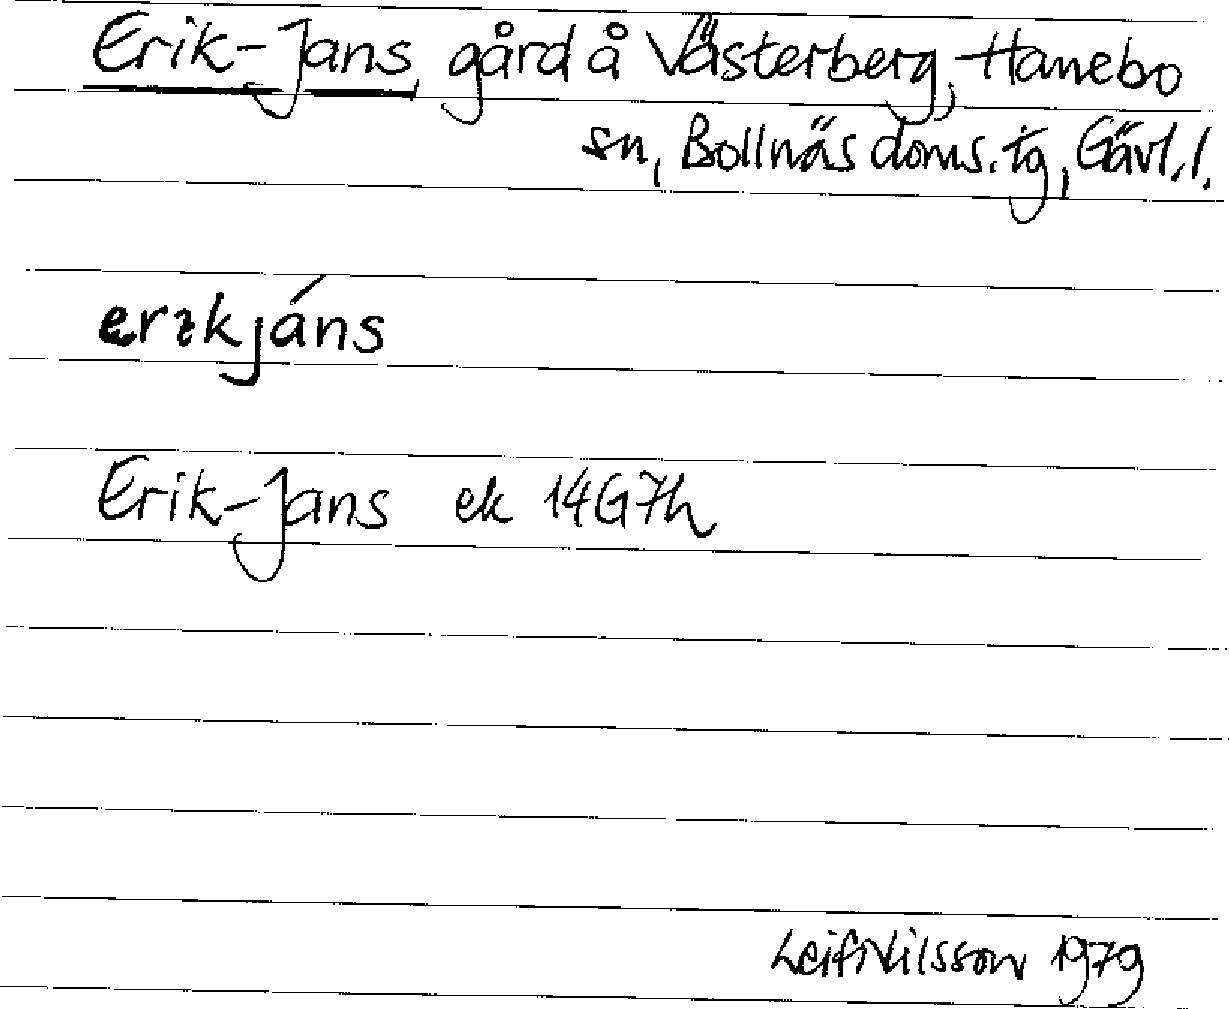 Erik-Jans, gård å Västerberg, Hanebo
sn, Bollnäs doms. tg, Gävl. l.
erɪkjáns
Erik-Jans ek 14G7h
Leif Nilsson 1979